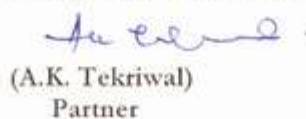 (A.K. Tekriwal)
Partner